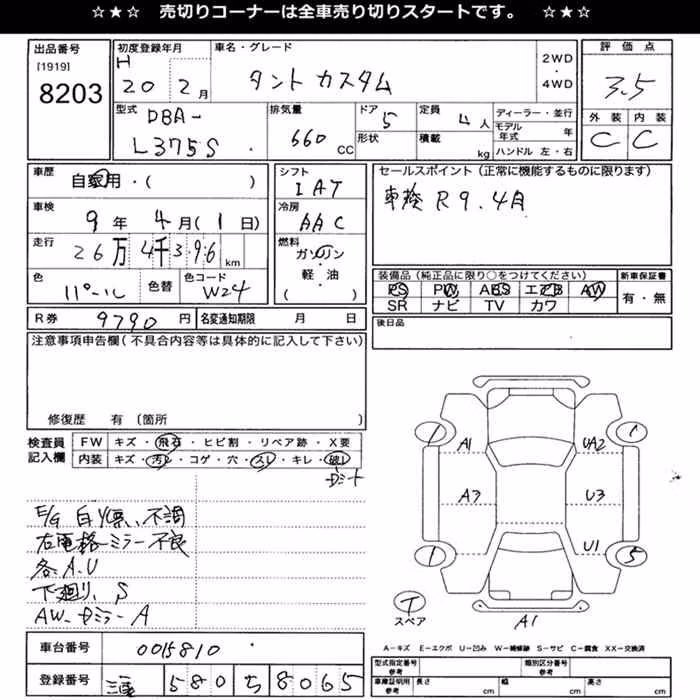 ☆★☆ 売切りコーナーは全車売り切りスタートです。 ☆★☆
出品番号
[1919]
8203
初度登録年月
H
20 2月
車名・グレード
タント カスタム
2WD
・
4WD
評価点
3.5
外装 内装
C C
型式
DBA-
L375S
排気量
660 CC
ドア
5
形状
定員
4人
積載
kg
ディーラー・並行
モデル年式 年
ハンドル 左・右
車歴
自家用・( )
車検
9年 4月(1日)
走行
26万4千396km
色
パール
色替
色コード
W24
シフト
IAT
冷房
AAC
燃料
ガソリン
・
軽・油
( )
セールスポイント(正常に機能するものに限ります)
車検 R9.4月
装備品(純正品に限り○をつけてください)
PS PW ABS エアB AW
SR ナビ TV カワ
新車保証書
有・無
R券 9790円
名変通知期限 月 日
後日品
注意事項申告欄(不具合内容等は具体的に記入して下さい)
修復歴 有 〔箇所 〕
検査員
記入欄
FW キズ・飛石・ヒビ割・リペア跡・X要
内装 キズ・汚レ・コゲ・穴・スレ・キレ・破レ
E/G 白煙、不調
右電格ミラー不良
各A.U
下廻り、S
A1
UA2
A3
U3
U1
A1
1
1
1
5
T
スペア
A−キズ E−エクボ U−凹み W−補修跡 S−サビ C−腐食 XX−交換済
車台番号
0015810
登録番号
三重 580 ち 8065
型式指定番号
参考
類別区分番号
参考
車庫証明用
参考
長さ cm
幅 cm
高さ cm